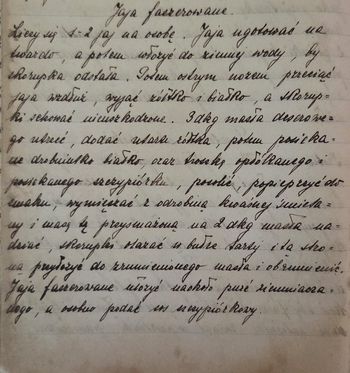 Jaja faszerowane.
Liczy się 1-2 jaj na osobę. Jaja ugotować na
twardo, a potem włożyć do zimnej wody, by
skorupka odstała. Potem ostrym nożem przeciąć
jaja wzdłuż, wyjąć żółtko i białko, a skorup-
ki schować nieuszkodzone. 3 dkg masła deserowe-
go utrzeć, dodać utarte żółtka, potem posieka-
ne drobniutko białko, oraz trochę opłukanego i
posiekanego szczypiórku, posolić, popieprzyć do
smaku, wymieszać z odrobiną kwaśnej śmieta-
ny i masą tą przysmażoną na 2 dkg masła na-
dziać, skorupki otaczać w bułce tartej i tą stro-
ną przyłożyć do zrumienionego masła i obrumienić.
Jaja faszerowane ułożyć naokoło puré ziemniacza-
nego, a osobno podać sos szczypiórkowy.